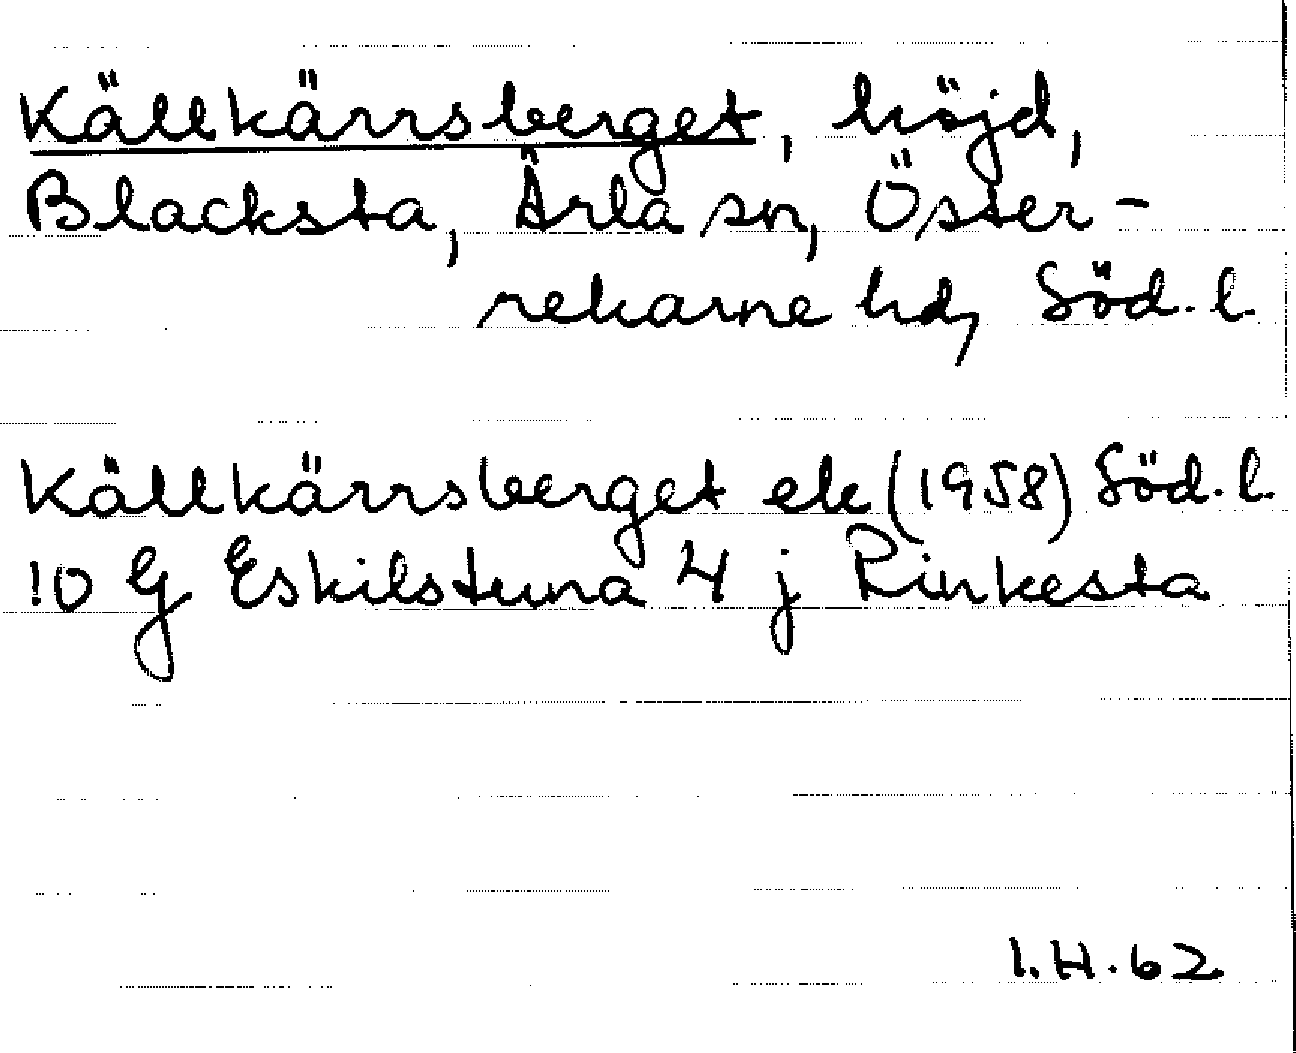 Källkärrsberget, höjd,
Blacksta, Ärla sn, Öster-
rekarne hd, Söd. l.
Källkärrsberget ek (1958) Söd. l.
10 G Eskilstuna 4 j Rinkesta
I.H. 62